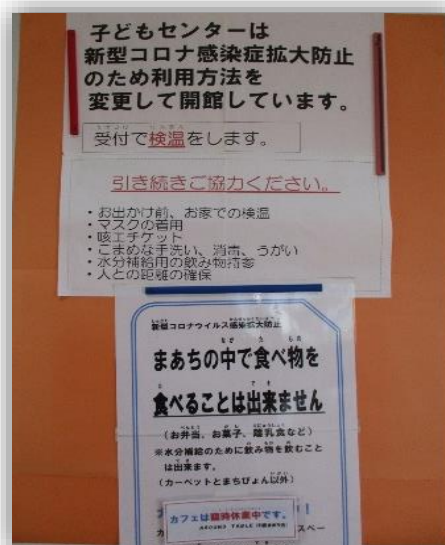 子どもセンターは
新型コロナ感染症拡大防止
のため利用方法を
変更して開館しています。
受付で検温をします。
引き続きご協力ください。
・お出かけ前、お家での検温
・マスクの着用
・咳エチケット
・こまめな手洗い、消毒、うがい
・水分補給用の飲み物持参
・人との距離の確保
新型コロナウイルス感染拡大防止
まあちの中で食べ物を
食べることは出来ません
(お弁当、お菓子、離乳食など)
※水分補給のために飲み物を飲むこと
は出来ます。
(カーペットとまちぴょん以外)
カフェは臨時休業中です。